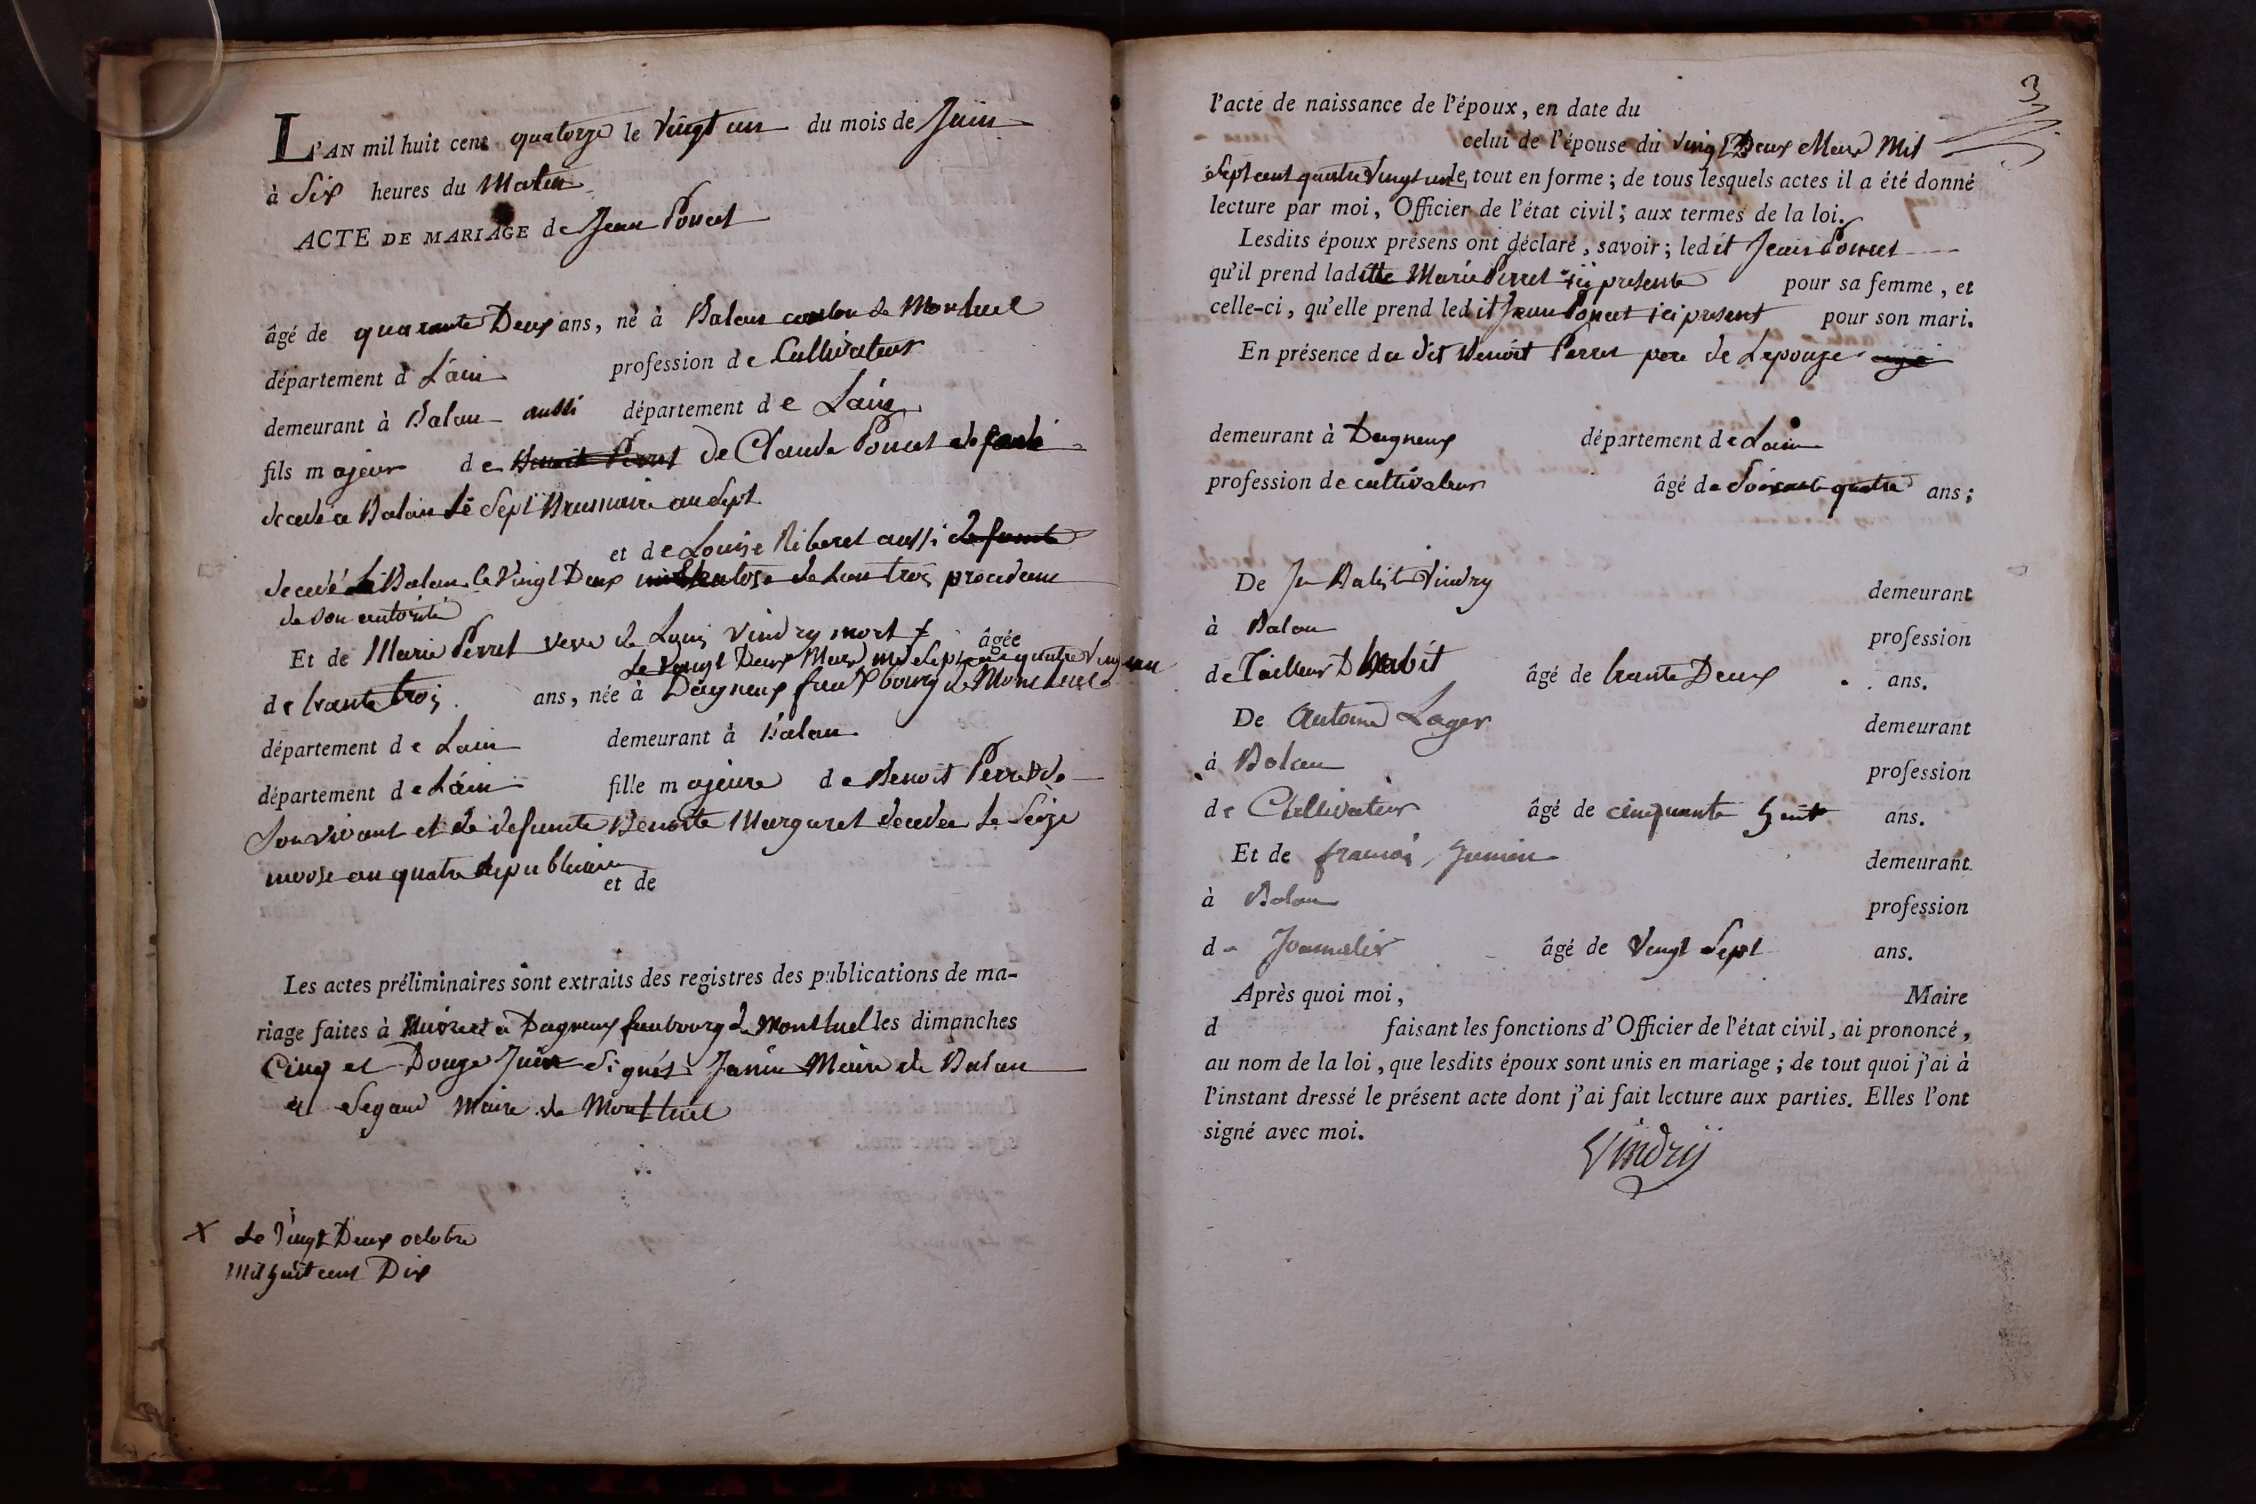 L'AN mil huit cent quatorze le vingt un du mois de Juin
à Six heures du Matin
ACTE DE MARIAGE de Jean Poncet
âgé de quarante Deux ans, né à Balan canton de Montluel
département d Lain profession de Cultivateur
demeurant à Balan aussi département de Lain
fils majeur de Benoit Perret de Claude Poncet defunt
decedé a Balan le Sept Brumaire an Sept
et de Louise Riberet aussi defunte
decedé à Balan le Vingt Deux de Lan trois
Et de Marie Perret veve de Louis Vindry mort X âgée
Le Vingt Deux Mars mil Sept cent quatre Vingt un
de trante trois ans, née à Dagneux fauxbourg de Montluel
département de Lain demeurant à Balan
département de Lain fille majeure de Benoit Perret de
Son vivant et de defunte Benoite Margaret decedee le Seize
nivose an quatre Republicain
et de
Les actes préliminaires sont extraits des registres des publications de ma-
riage faites à a Dagneux faubourg de Montluel les dimanches
Cinq et Douze Juin Signés Janin Maire de Balan
et Segaud Maire de Montluel
X Le Vingt Deux octobre
Mil huit cent Dix
l'acte de naissance de l'époux, en date du
celui de l'épouse du Vingt Deux Mars Mil
Sept cent quatre Vingt un le tout en forme ; de tous lesquels actes il a été donné
lecture par moi, Officier de l'état civil ; aux termes de la loi.
Lesdits époux présens ont déclaré, savoir ; ledit Jean Poncet
qu'il prend laditte Marie Perret ici presente pour sa femme, et
celle-ci, qu'elle prend ledit Jean Poncet ici present pour son mari.
En présence du dit Benoit Perret pere de Lepouze agé
demeurant à Dagneux département de Lain
profession de cultivateur âgé de Soixante quatre ans ;
De Jn Batiste Vindry demeurant
à Balan profession
de Tailleur D habit âgé de trante Deux ans.
De Antoine Lager demeurant
à Balan profession
de Cultivateur âgé de cinquante huit ans.
Et de francois demeurant
à Balan profession
de Journalier âgé de Vingt Sept ans.
Après quoi moi, Maire
d faisant les fonctions d'Officier de l'état civil, ai prononcé,
au nom de la loi, que lesdits époux sont unis en mariage ; de tout quoi j'ai à
l'instant dressé le présent acte dont j'ai fait lecture aux parties. Elles l'ont
signé avec moi.
Vindry